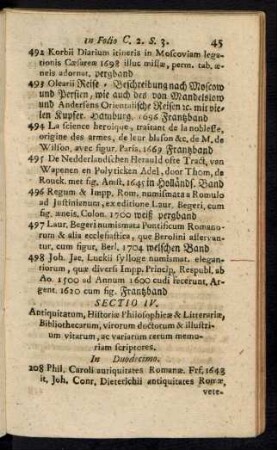 in Folio C. 2. S. 3. 45
492 Korbii Diarium itineris in Moscoviam lega-
tionis Cæsareæ 1698 illuc missæ, perm. tab. æ-
neis adornat. pergband
493 Olearii Reise-Beschreibung nach Moscow
und Persien, wie auch des von Mandelslow
und Andersens Orientalische Reisen ꝛc. mit vie-
len Kupfer. Hamburg. 1696 Frantzband
494 La science heroique, traitant de la noblesse,
origine des armes, de leur blason &c. de M. de
Wilson, avec figur. Paris. 1669 Frantzband
495 De Nedderlandschen Herauld ofte Tract. van
Wapenen en Polyticken Adel, door Thom. de
Rouck. met fig. Amst. 1645 in Holländs. Band
496 Regum & Impp. Rom. numismata a Romulo
ad Justinianum, ex editione Laur. Begeri, cum
fig. æneis. Colon. 1700 weiß pergband
497 Laur. Begeri numismata Pontificum Romano-
rum & alia ecclesiastica, quæ Berolini asservan-
tur, cum figur. Berl. 1704 welschen Band
498 Joh. Jac. Luckii sylloge numismat. elegan-
tiorum, quæ diversi Impp. Princip. Respubl. ab
Ao. 1500 ad Annum 1600 cudi fecerunt. Ar-
gent. 1620 cum fig. Frantzband
SECTIO IV.
Antiquitatum, Historiæ Philosophicæ & Litterariæ,
Bibliothecarum, virorum doctorum & illustri-
um vitarum, ac variarum rerum memo-
riam scriptores.
In Duodecimo.
208 Phil. Caroli antiquitates Romanæ. Frf. 1643
it. Joh. Conr. Dieterichii antiquitates Romæ,
vete-